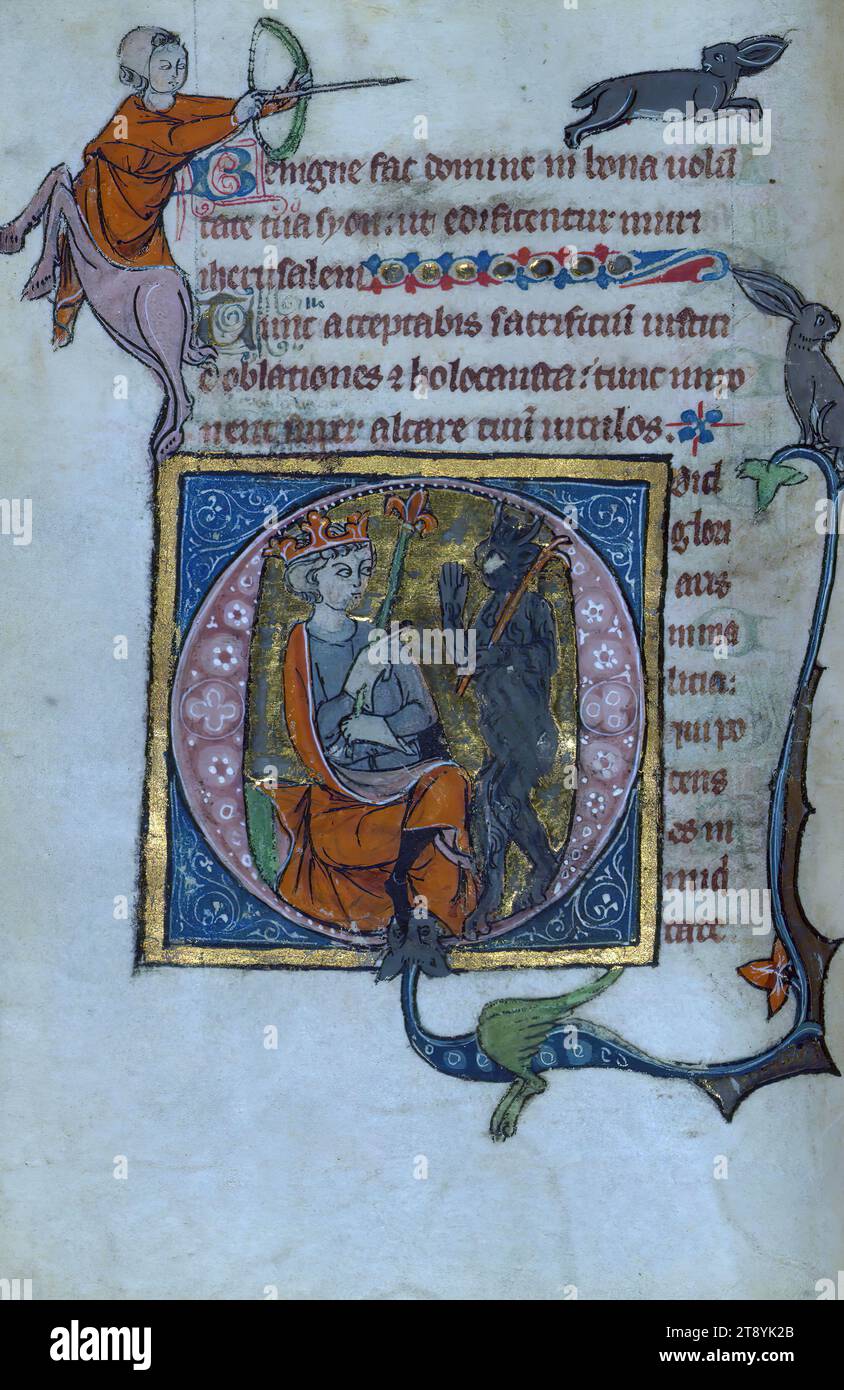 Benigne fac domine in bona uolū
tate tua syon: ut edificentur muri
iherusalem
Tunc acceptabis sacrificiū iustici
e oblationes ⁊ holocausta: tunc inpo
nent super altare tuū uitulos.
Uid
glori
aris
in ma
licia:
qui po
tens
es in
iniqi
tate
a
alamy
Image ID: 2T8YK2B
www.alamy.com